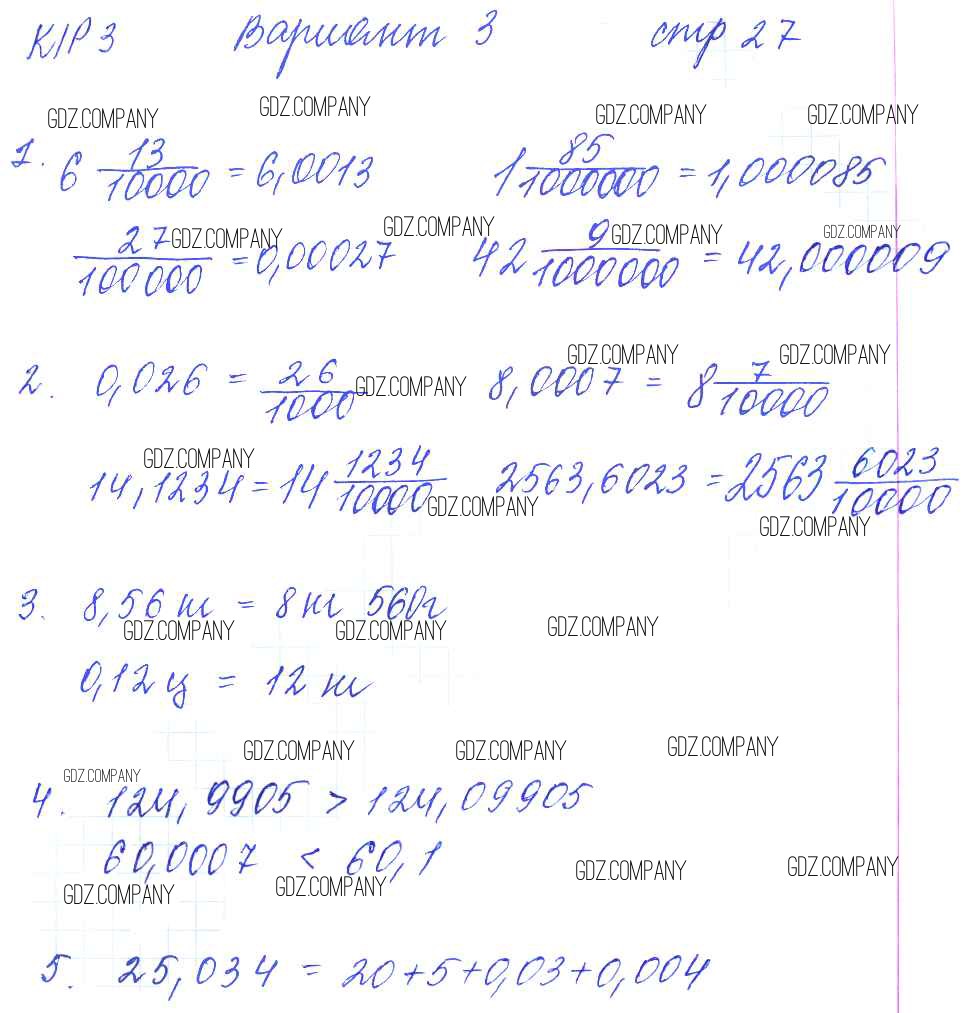 К/Р 3 Вариант 3 стр 27
GDZ.COMPANY GDZ.COMPANY GDZ.COMPANY GDZ.COMPANY
1. 6 13/10000 = 6,0013 1 85/1000000 = 1,000085
GDZ.COMPANY GDZ.COMPANY GDZ.COMPANY GDZ.COMPANY
27/100000 = 0,00027 42 9/1000000 = 42,000009
GDZ.COMPANY GDZ.COMPANY
2. 0,026 = 26/1000 GDZ.COMPANY 8,0007 = 8 7/10000
GDZ.COMPANY
14,1234 = 14 1234/10000 GDZ.COMPANY 2563,6023 = 2563 6023/10000
GDZ.COMPANY
3. 8,56 кг = 8 кг 560г
GDZ.COMPANY GDZ.COMPANY GDZ.COMPANY
0,12 ц = 12 кг
GDZ.COMPANY GDZ.COMPANY GDZ.COMPANY
GDZ.COMPANY
4. 124,9905 > 124,09905
60,0007 < 60,1
GDZ.COMPANY GDZ.COMPANY GDZ.COMPANY GDZ.COMPANY
5. 25,034 = 20+5+0,03+0,004